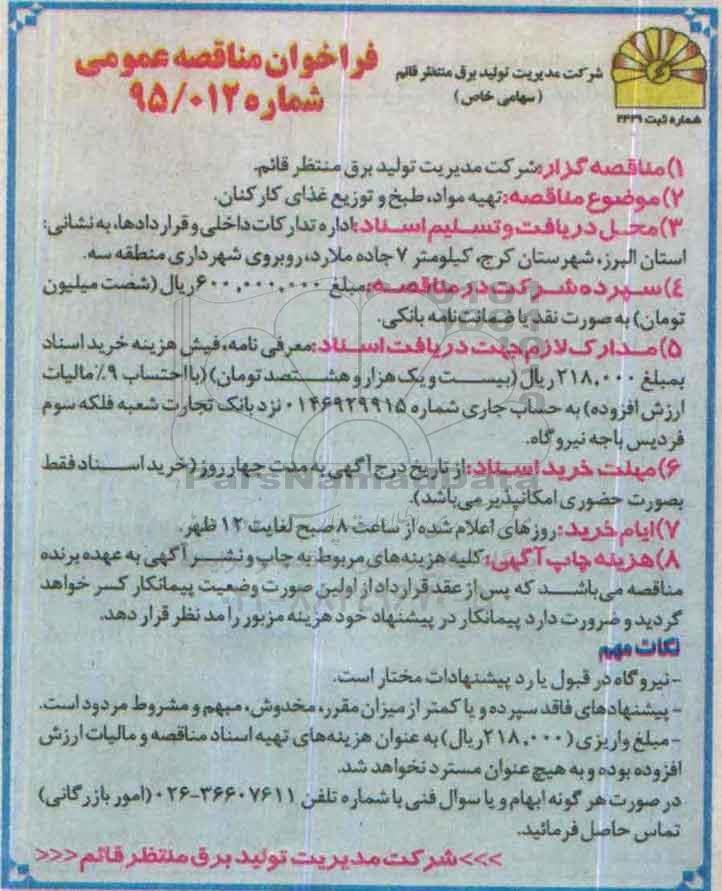 فراخوان مناقصه عمومی
شماره ۹۵/۰۱۲
شرکت مدیریت تولید برق منتظر قائم
(سهامی خاص)
شماره ثبت ۲۴۳۹
۱)مناقصه گزار:شرکت مدیریت تولید برق منتظر قائم.
۲)موضوع مناقصه:تهیه مواد، طبخ و توزیع غذای کارکنان.
۳)محل دریافت وتسلیم اسناد:اداره تدارکات داخلی و قراردادها، به نشانی:
استان البرز، شهرستان کرج، کیلومتر ۷ جاده ملارد، روبروی شهرداری منطقه سه.
۴)سپرده شرکت در مناقصه:مبلغ ۶۰۰,۰۰۰,۰۰۰ریال (شصت میلیون
تومان) به صورت نقد یا ضمانت نامه بانکی.
۵)مدارک لازم جهت دریافت اسناد:معرفی نامه، فیش هزینه خرید اسناد
بمبلغ ۲۱۸,۰۰۰ ریال (بیست و یک هزار و هشتصد تومان) (با احتساب ۹٪مالیات
ارزش افزوده) به حساب جاری شماره ۰۱۴۶۹۲۹۹۱۵ نزد بانک تجارت شعبه فلکه سوم
فردیس باجه نیروگاه.
۶)مهلت خرید اسناد:از تاریخ درج آگهی به مدت چهار روز (خرید اسناد فقط
بصورت حضوری امکانپذیر می‌باشد).
۷)ایام خرید:روزهای اعلام شده از ساعت ۸ صبح لغایت ۱۲ ظهر.
۸)هزینه چاپ آگهی:کلیه هزینه‌های مربوط به چاپ و نشر آگهی به عهده برنده
مناقصه می‌باشد که پس از عقد قرارداد از اولین صورت وضعیت پیمانکار کسر خواهد
گردید و ضرورت دارد پیمانکار در پیشنهاد خود هزینه مزبور را مد نظر قرار دهد.
نکات مهم
-نیروگاه در قبول یا رد پیشنهادات مختار است.
- پیشنهادهای فاقد سپرده و یا کمتر از میزان مقرر، مخدوش، مبهم و مشروط مردود است.
- مبلغ واریزی (۲۱۸,۰۰۰ریال) به عنوان هزینه‌های تهیه اسناد مناقصه و مالیات ارزش
افزوده بوده و به هیچ عنوان مسترد نخواهد شد.
در صورت هر گونه ابهام و یا سوال فنی با شماره تلفن ۳۶۶۰۷۶۱۱-۰۲۶ (امور بازرگانی)
تماس حاصل فرمائید.
>>>شرکت مدیریت تولید برق منتظر قائم<<<
ParsNamadData